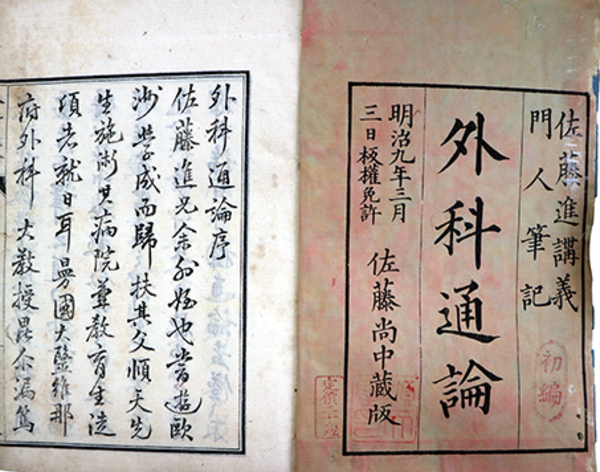 佐藤進講義
門人筆記
初編
外科通論
明治九年三月
三日板權免許
佐藤尚中蔵版
外科通論序
佐藤進兄余姪也嘗遊歐
洲學成而歸扶其父順天先
生施術其病院兼教育生徒
項者就日耳曼國大醫維那
府外科大教授